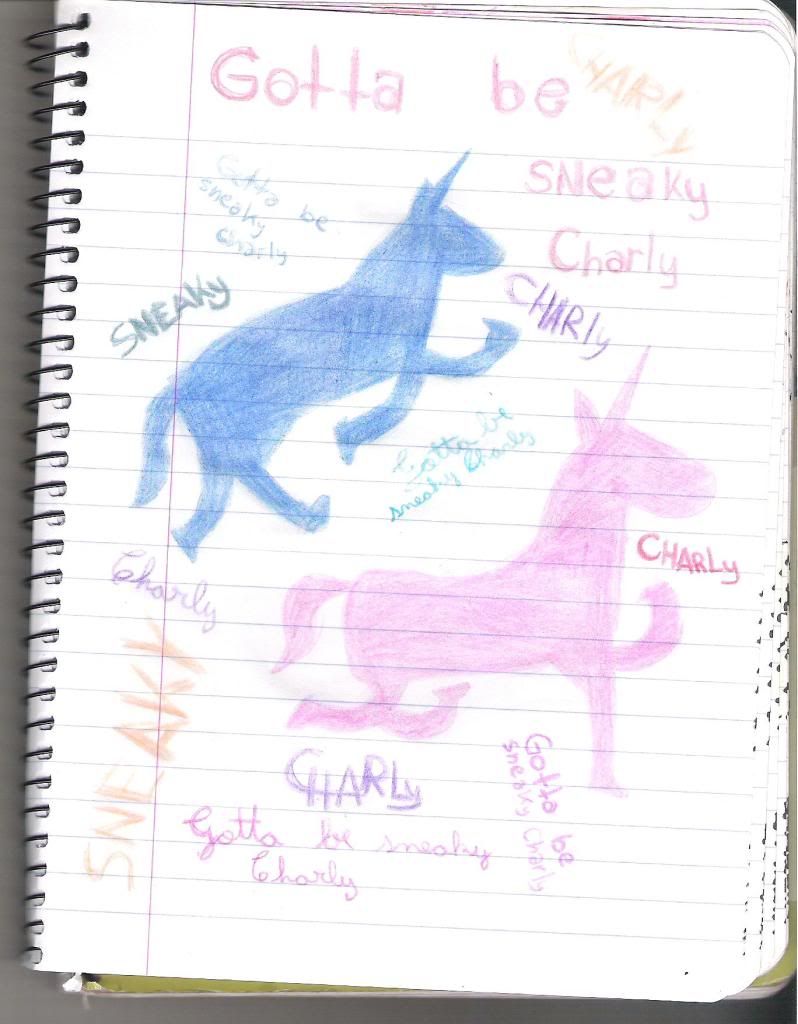 Gotta be
CHARLY
SNeaky
Charly
Gotta be
sneaky
Charly
SNEAKy
CHARly
Gotta be
sneaky Charly
CHARLy
Charly
SNEAKY
CHARLy
Gotta be
sneaky Charly
Gotta be sneaky
Charly